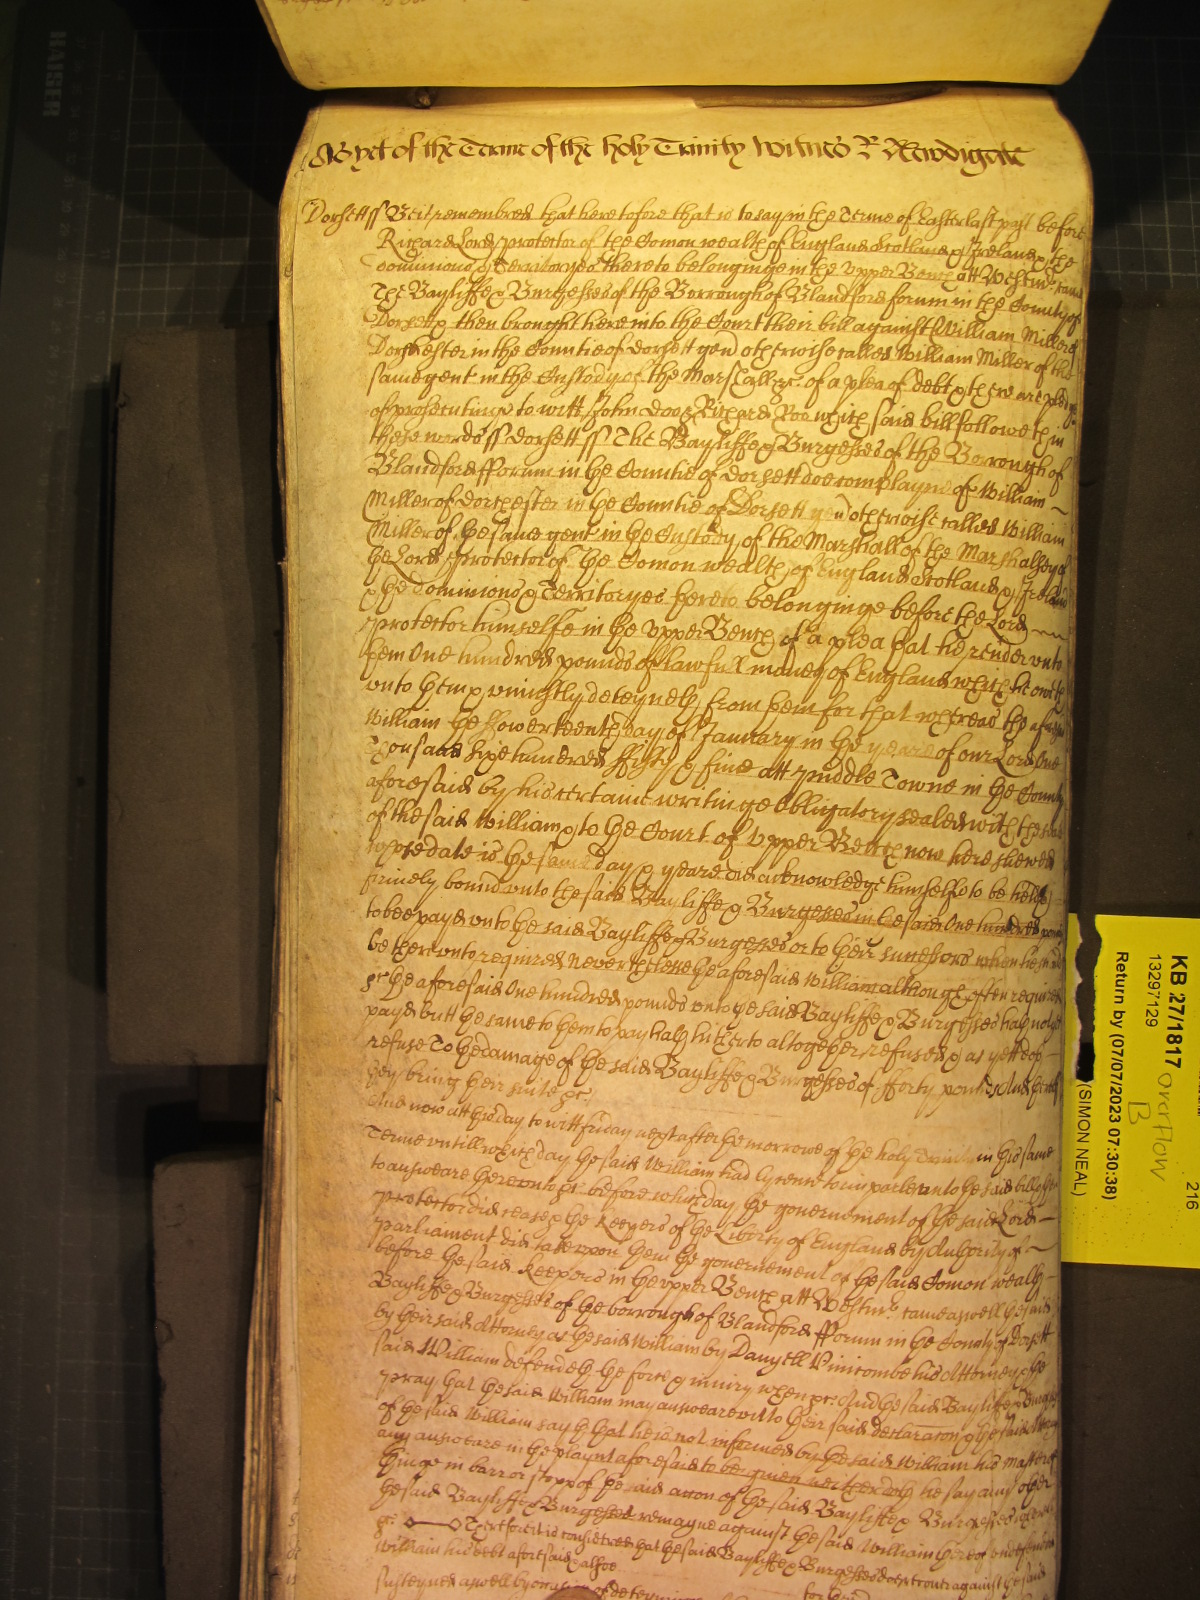 As yet of the Terme of the holy Trinity Witnes R Newdigate
Dorsett ss Be it remembred that heretofore that is to say in the Terme of Easter last past before
Richard Lord protector of the Comon wealth of England Scotland & Ireland & the
dominions & Territoryes thereto belonginge in the upper Bench att Westmr came
The Bayliffe & Burgesses of the Borrough of Blandford forum in the County of
Dorsett & then brought here into the Court their bill against William Miller of
Dorchester in the Countie of dorsett gen otherwise called William Miller of the
same gent in the Custody of the Marshall &c of a plea of debt & there are pledges
of prosecutinge to witt John doo & Richard Roo which said bill followeth in
these words ss dorsett ss The Bayliffe & Burgesses of the Borrough of
Blandford fforum in the Countie of dorsett doe complayne of William
Miller of dorchester in the Countie of Dorsett gen otherwise called William
Miller of the same gent in the Custody of the Marshall of the Marshalsey of
the Lord protector of the Comon wealth of England Scotland & Ireland
& the dominions & Territoryes thereto belonginge before the Lord
protector himselfe in the upper Bench of a plea that he render unto
them One hundred pounds of lawfull money of England which he oweth
unto them & uniustly deteyneth from them for that whereas the aforesaid
William the ffowerteenth day of January in the yeare of our Lord One
Thousand sixe hundred ffifty & five att Middle Towne in the County
aforesaid by his certaine writinge Obligatory sealed with the seale
of the said William & to the Court of Upper Bench now here shewed
whose date is the same day & yeare did acknowledge himselfe to be held &
firmely bound unto the said Bayliffe & Burgesses in the said One hundred pounds
to bee payd unto the said Bayliffe & Burgesses or to their successors when he
be thereunto required Neverthelesse the aforesaid William although often required
&c the aforesaid One hundred pounds unto the said Bayliffe & Burgesses hath not yet
payd butt the same to them to pay hath hitherto altogether refused & as yett doth
refuse To the damage of the said Bayliffe & Burgesses of fforty pounds And thereof
they bring their suite &c
And now att this day to witt friday next after the morrowe of the holy Trinity in this same
Terme untill which day the said William had lycence to imparle unto the said bill & then
to answeare thereunto &c before which day the government of the said Lord
protector did cease & the Keepers of the Liberty of England by Authority of
parliament did take upon them the governement of the said Comon wealth
before the said keepers in the upper Bench att Westmr came aswell the said
Bayliffe & Burgesses of the borrough of Blandford fforum in the County of Dorsett
by their said Attorney as the said William by Danyell Vinicombe his Attorney & the
said William defendeth the force & iniury when &c And the said Bayliffe & Burgesses
pray that the said William may answeare unto their said declaracon & the said Attorney
of the said William sayth that he is not informed by the said William his master of
any answeare in the playnt aforesaid to be given neither doth he say any other
thinge in barr or stopp of the said accon of the said Bayliffe & Burgesses whereby
the said Bayliffe & Burgesses remayne against the said William thereof undefended
&c Therefore it is considered that the said Bayliffe & Burgesses doe recover against the said
William his debt aforesaid & alsoe
susteyned aswell by occasion of deteyninge
KB 27/1817
13297129
Return by (07/07/2023 07:30:38)
(SIMON NEAL)
216
overflow
B
KAISER